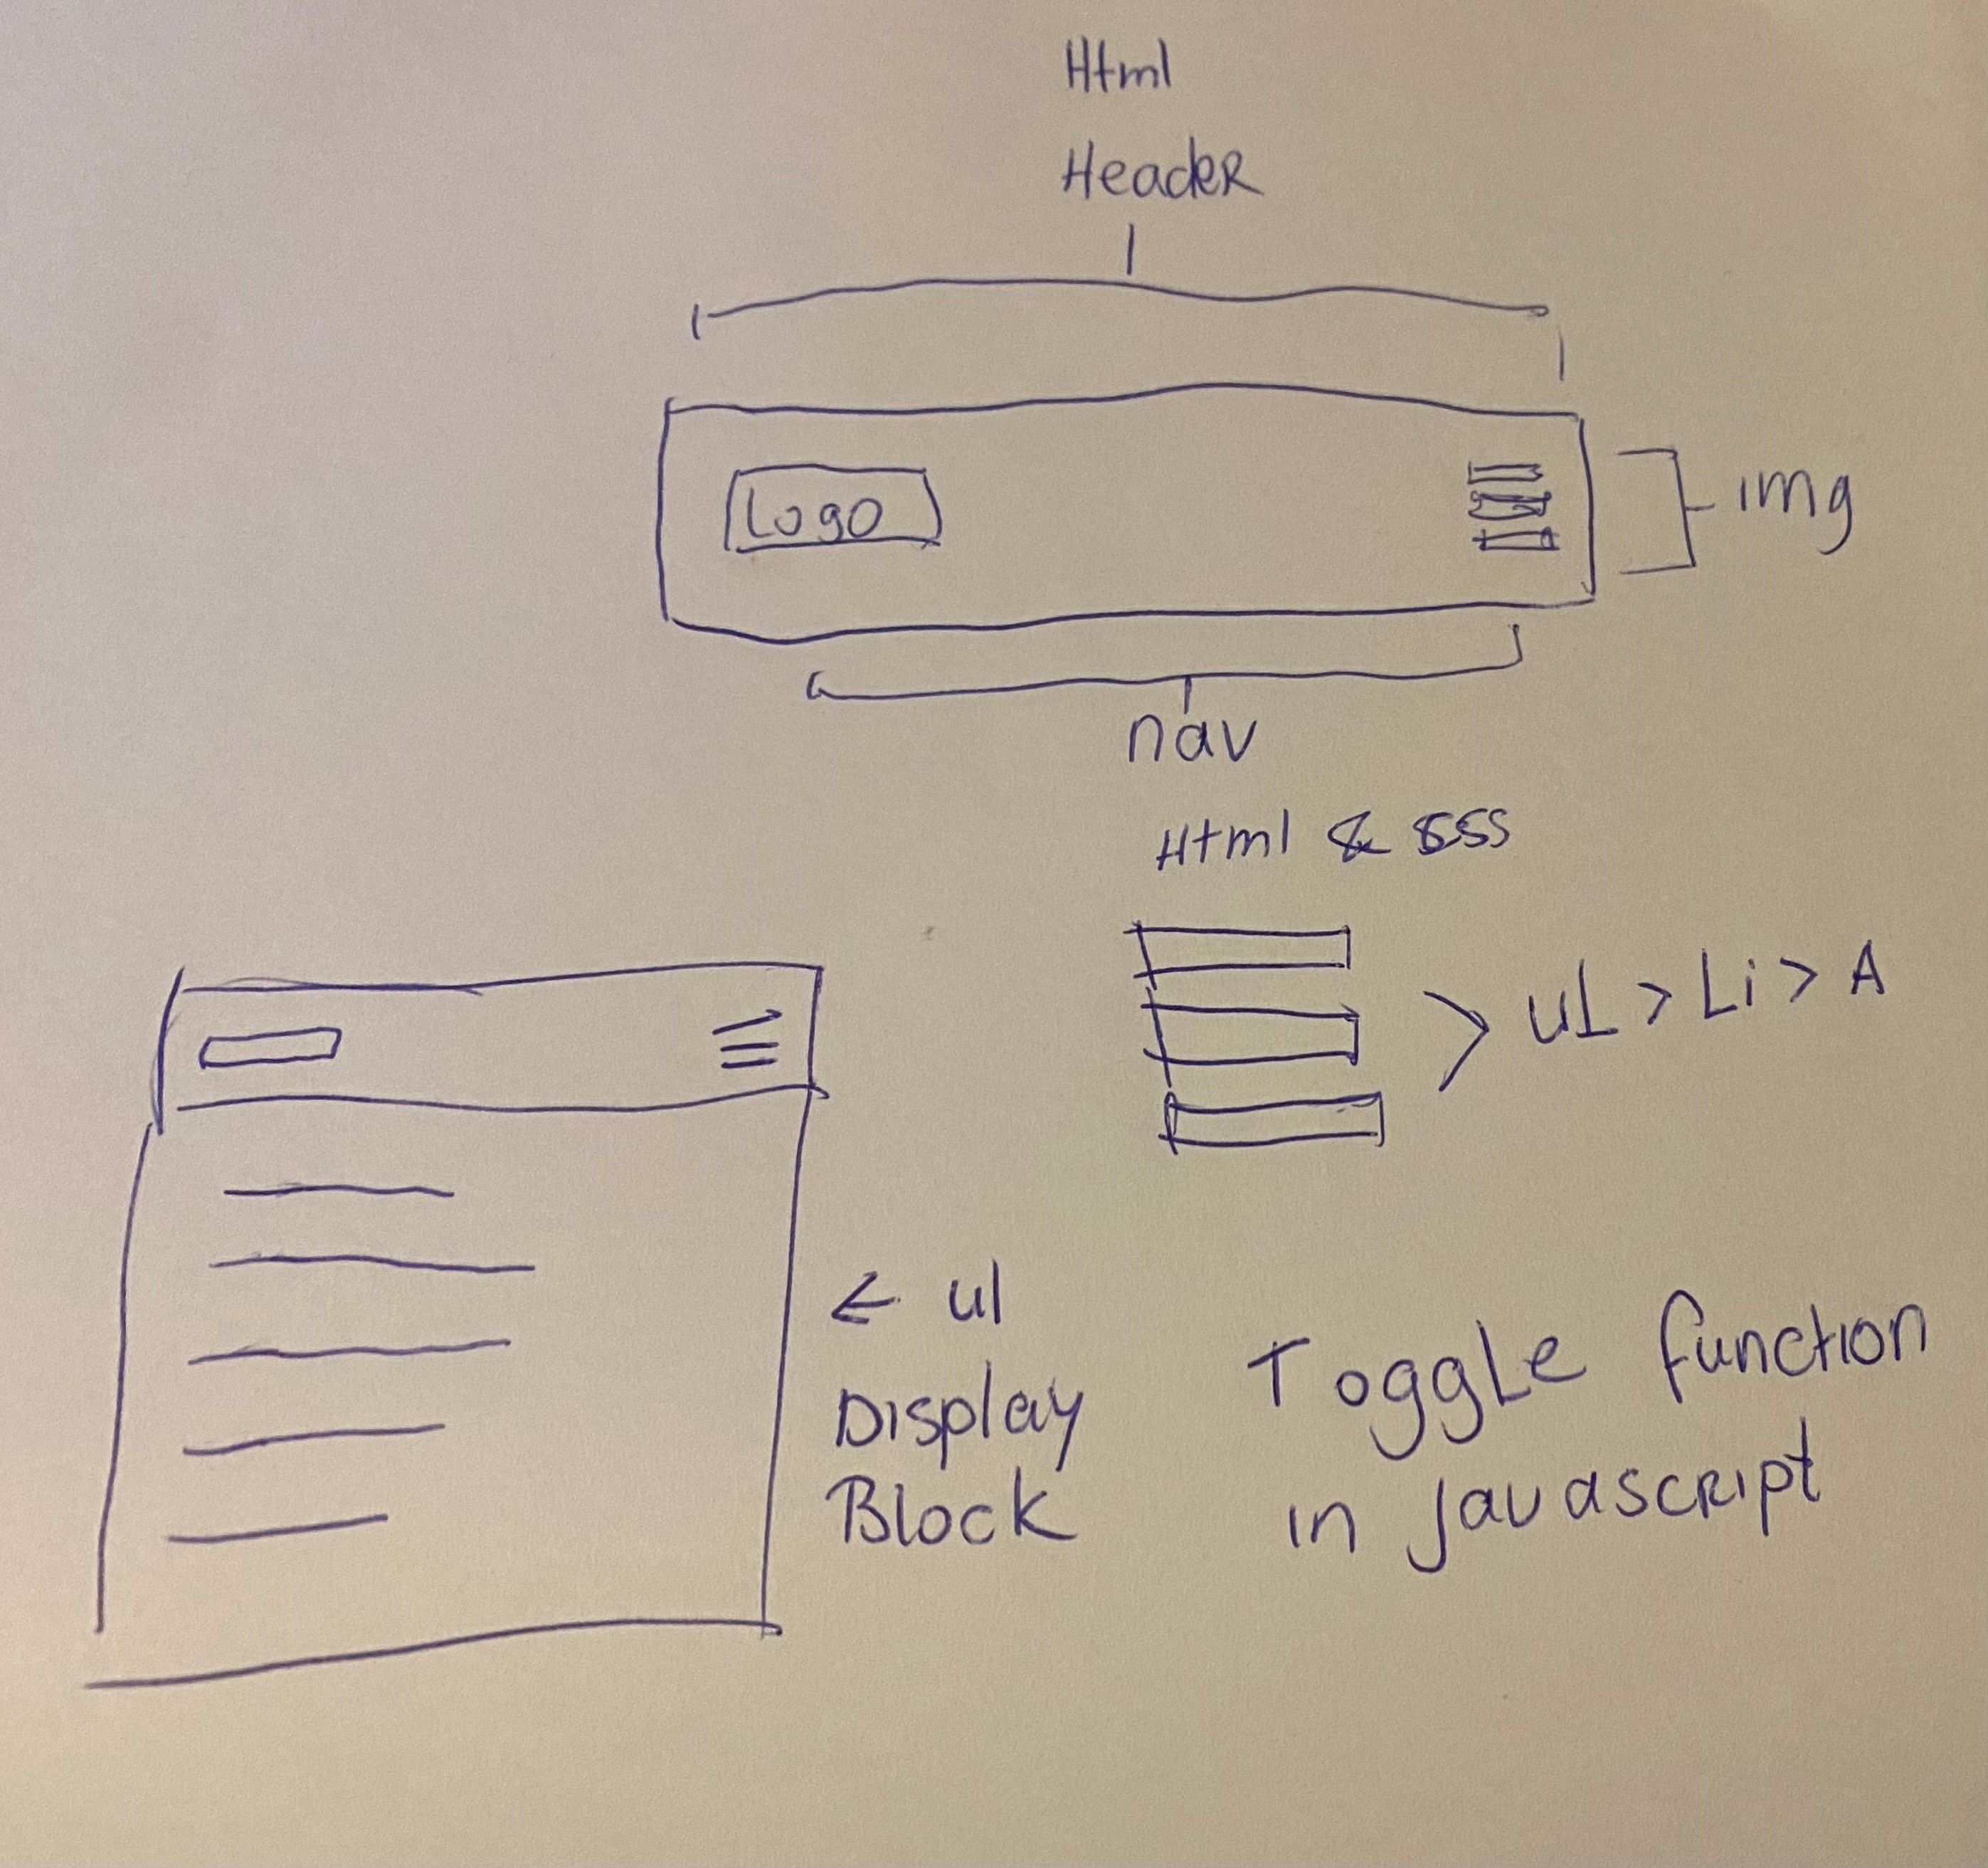 Html
Header
Logo
img
nav
Html & SSS
> uL > Li > A
← ul
Display
Block
Toggle function
in javascript